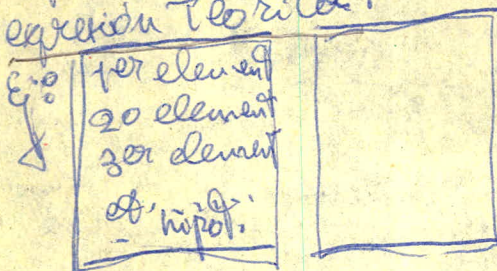 egresión Teórica.
Ej:
1er element
2o element
3er element
et. hipót.